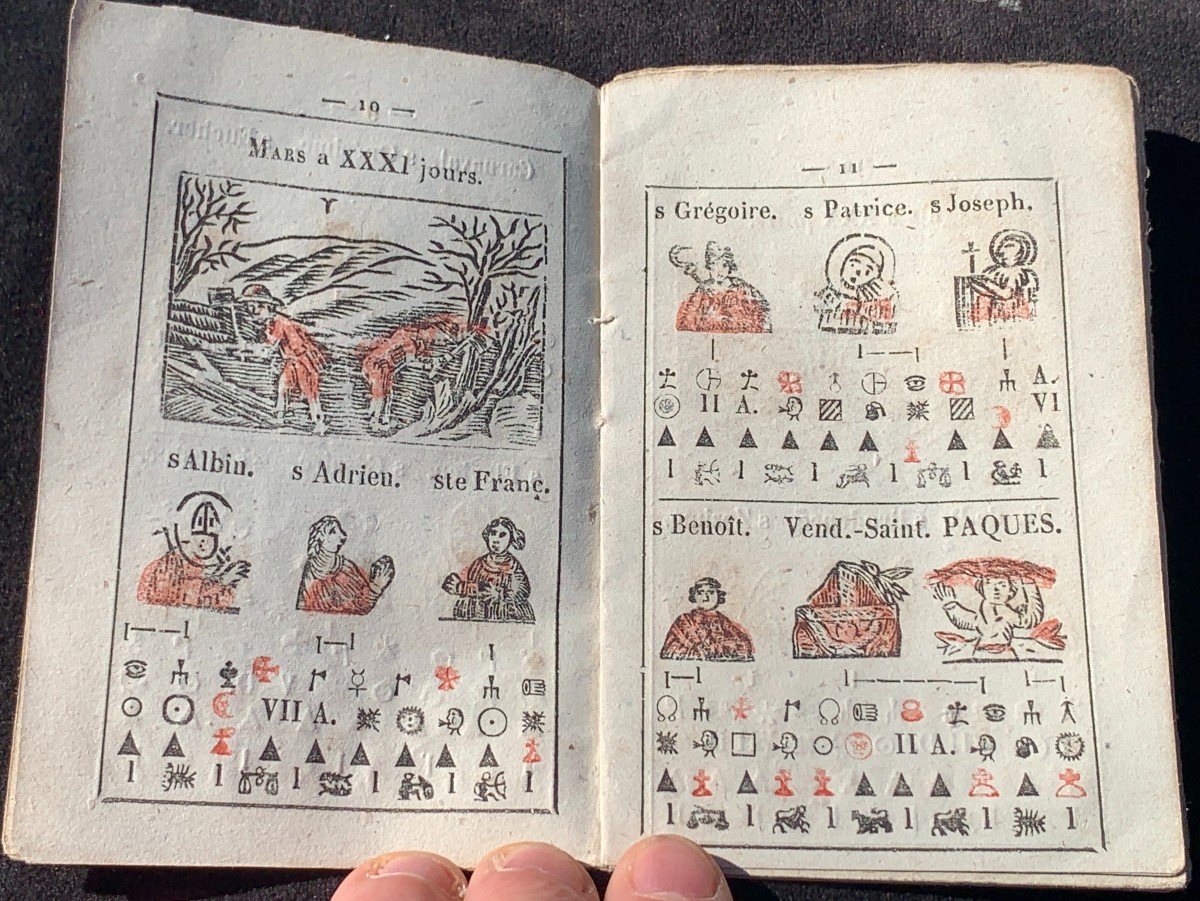 — 10 —
MARS a XXXI jours.
s Albin. s Adrien. ste Franç.
VII A.
l l l l l
— 11 —
s Grégoire. s Patrice. s Joseph.
A.
II A. VI
l l l l l
s Benoît. Vend.-Saint. PAQUES.
II A.
l l l l l l